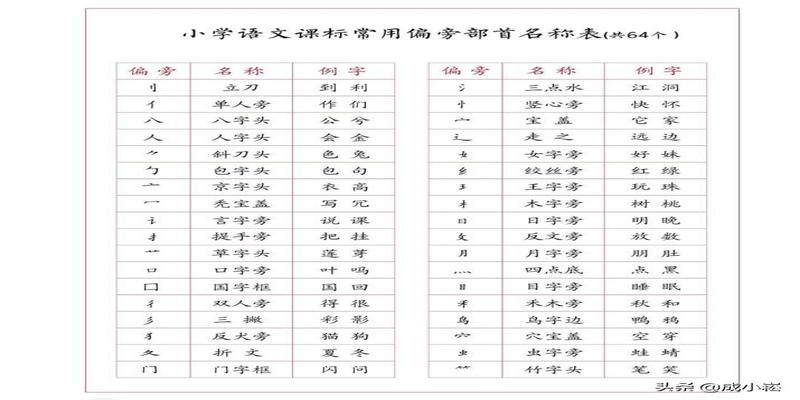 小学语文课标常用偏旁部首名称表(共64个)
偏旁 名称 例字 偏旁 名称 例字
刂 立刀 到 利 氵 三点水 江 洞
亻 单人旁 作 们 忄 竖心旁 快 怀
八 八字头 公 兮 宀 宝盖 它 家
人 人字头 会 金 辶 走之 远 边
⺈ 斜刀头 色 兔 女 女字旁 好 妹
勹 包字头 包 句 纟 绞丝旁 红 绿
亠 京字头 衣 高 王 王字旁 玩 珠
冖 秃宝盖 写 冗 木 木字旁 树 桃
讠 言字旁 说 课 日 日字旁 明 晚
扌 提手旁 把 挂 攵 反文旁 放 数
艹 草字头 莲 芽 月 月字旁 朋 肚
口 口字旁 叶 吗 灬 四点底 点 黑
囗 国字框 国 回 目 目字旁 睡 眠
彳 双人旁 得 很 禾 禾木旁 秋 和
彡 三撇 彩 影 鸟 鸟字边 鸭 鸦
犭 反犬旁 猫 狗 穴 穴宝盖 空 穿
夂 折文 夏 冬 虫 虫字旁 蛙 蜻
门 门字框 闪 问 ⺮ 竹字头 笔 笑
头条 @成小崧